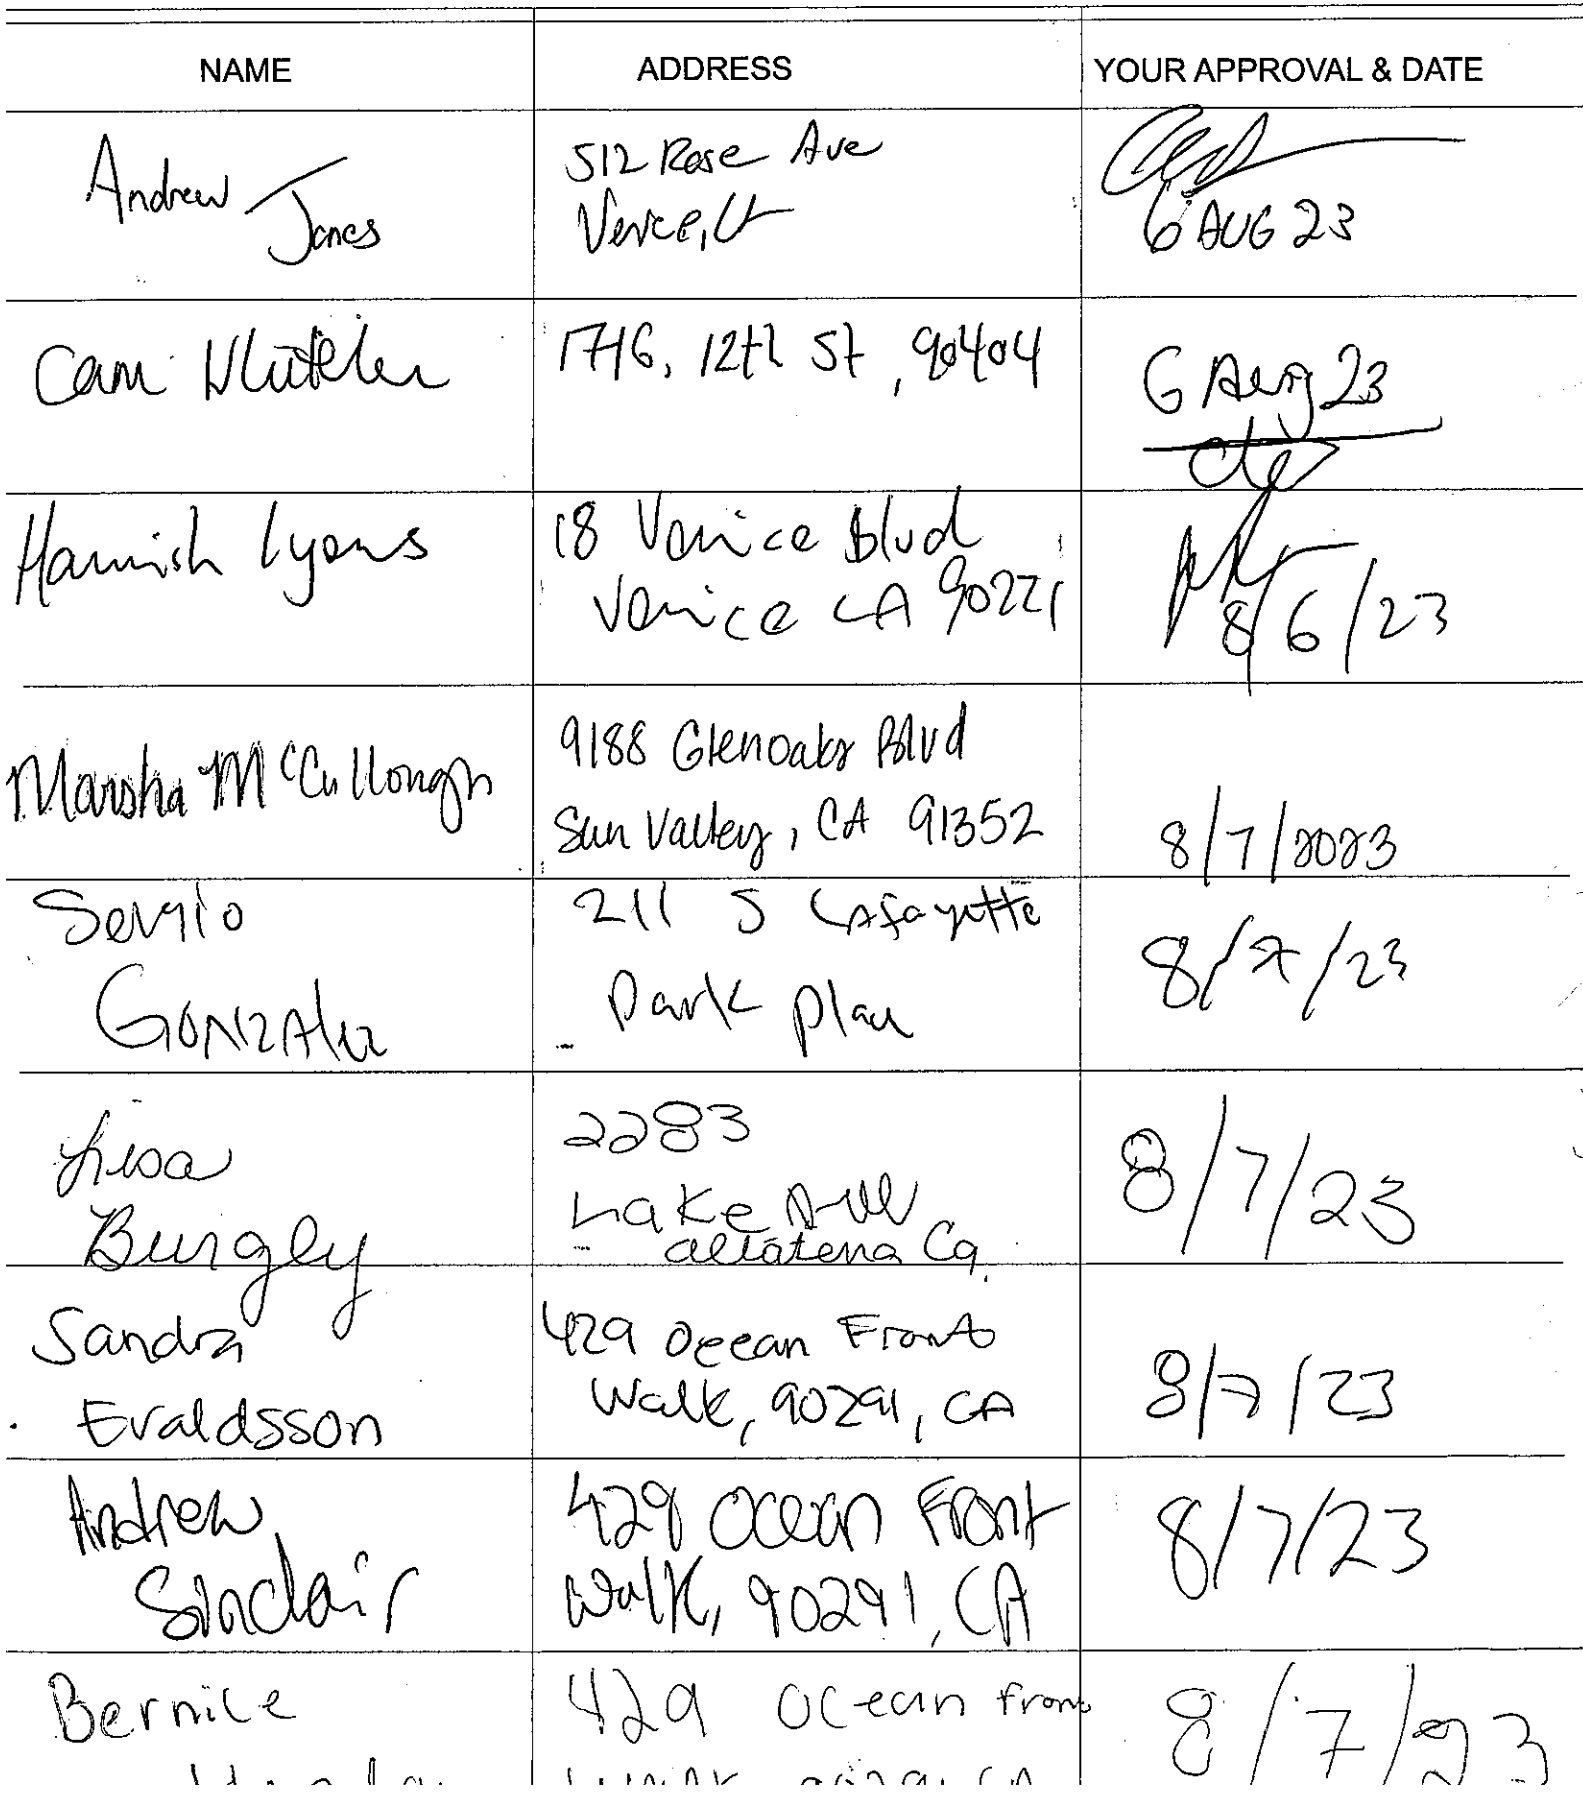 NAME ADDRESS YOUR APPROVAL & DATE
Andrew Jones
512 Rose Ave
Venice, CA
6 AUG 23
Cam
1716, 12th St, 90404
6 Aug 23
Hamish Lyons
18 Venice Blvd
Venice CA 90221
8/6/23
Marsha McCullough
9188 Glenoaks Blvd
Sun Valley, CA 91352
8/7/2023
Sergio
Gonzalez
211 S Lafayette
Park Place
8/7/23
Lisa
Burgley
2283
Lake Ave
altatena Ca.
8/7/23
Sandra
Evaldsson
429 Ocean Front
Walk, 90291, CA
8/7/23
Andrew
Sinclair
429 Ocean Front
Walk, 90291, CA
8/7/23
Bernice
429 Ocean Front
8/7/23